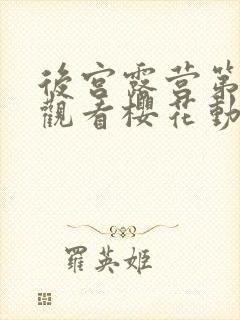 後宮露营第
觀看櫻花動
羅英姬